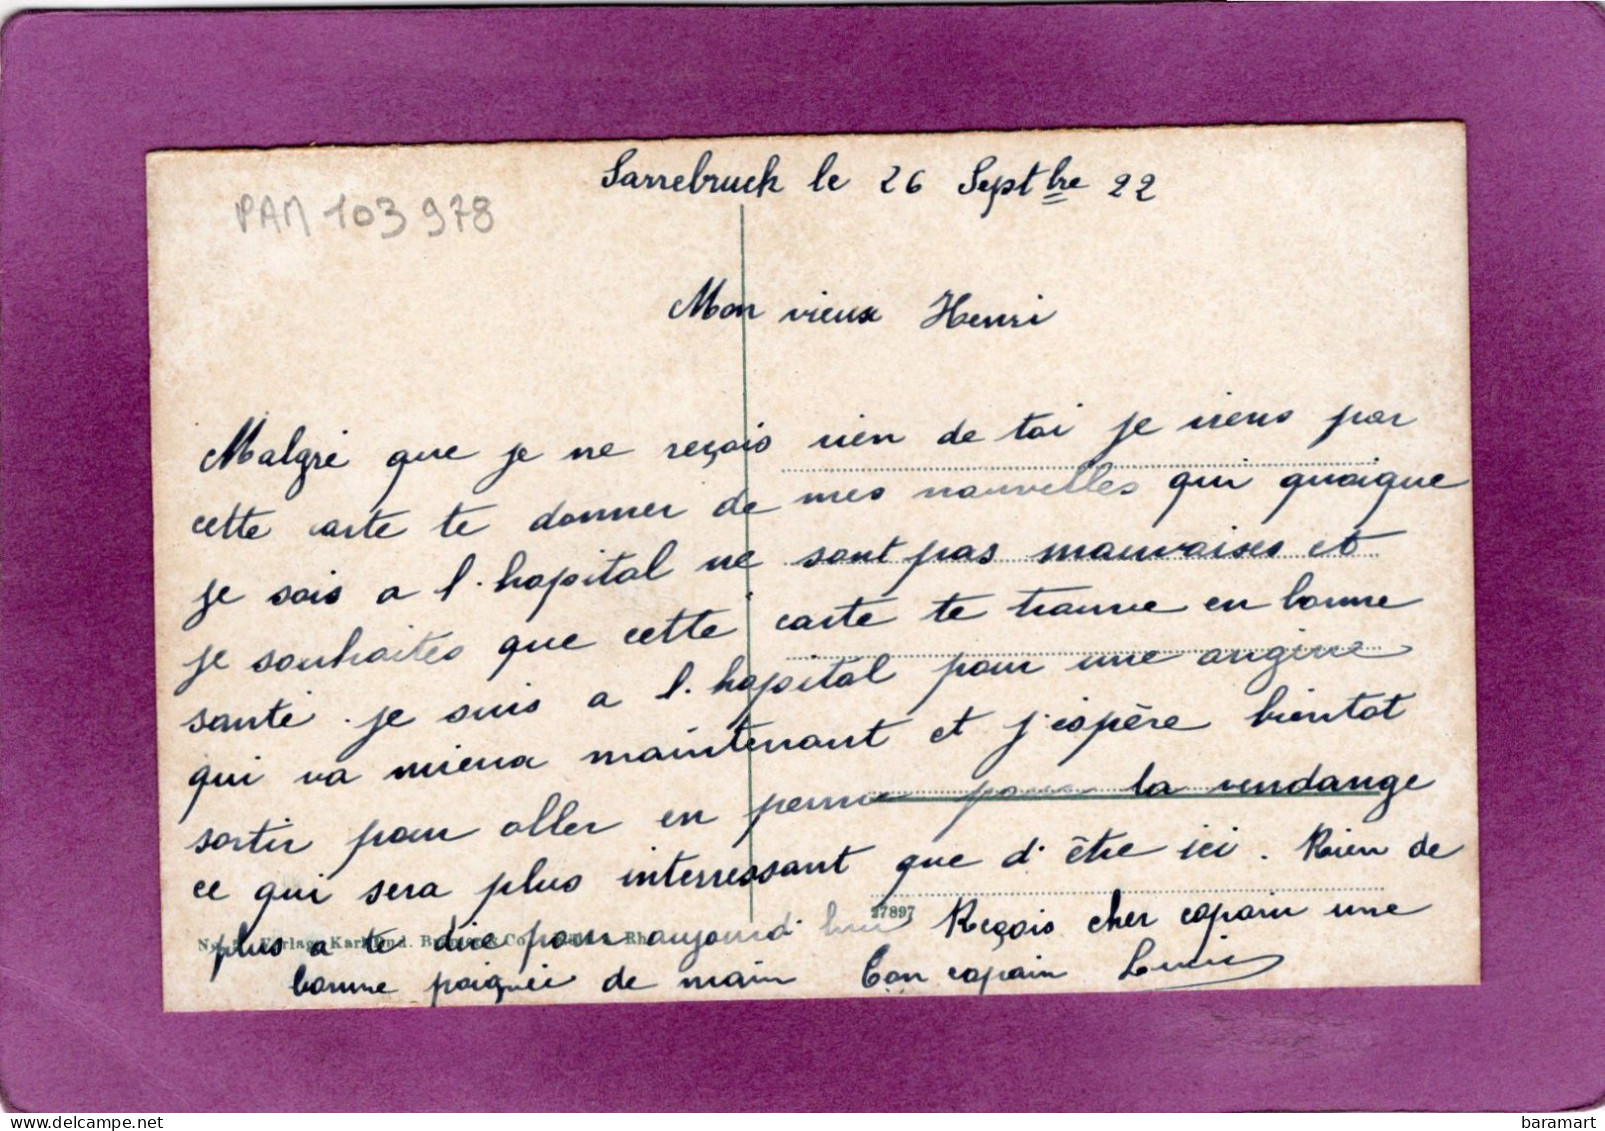 Sarrebruck le 26 Septbre 22
PAM 103 978
Mon vieux Henri
Malgré que je ne reçois rien de toi je viens par
cette carte te donner de mes nouvelles qui quoique
je sois a l'hopital ne sont pas mauvaises et
je souhaites que cette carte te trouve en bonne
santé. je suis a l'hopital pour une angine
qui va mieux maintenant et j'espère bientot
sortir pour aller en perme pour la vendange
ce qui sera plus interressant que d'être ici. Rien de
27897
plus a te dire pour aujourd'hui Reçois cher copain une
Verlag Karl
bonne poignée de main Ton copain Louis
baramart